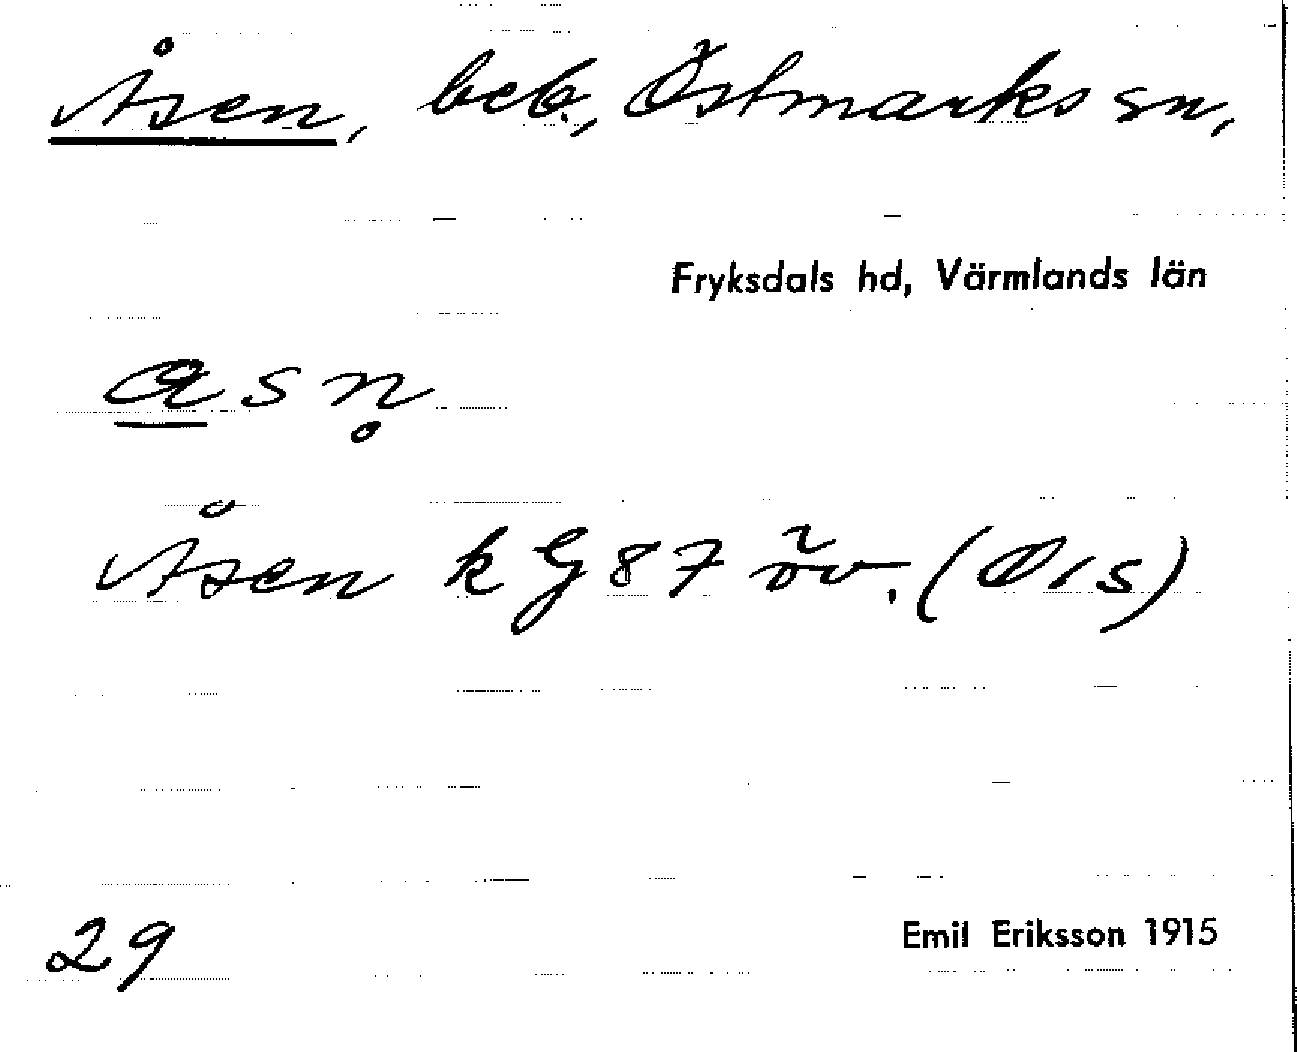 Åsen, beb., Östmarks sn,
Fryksdals hd, Värmlands län
a̲sn̥
Åsen k G 87 öv. (Ois)
29
Emil Eriksson 1915